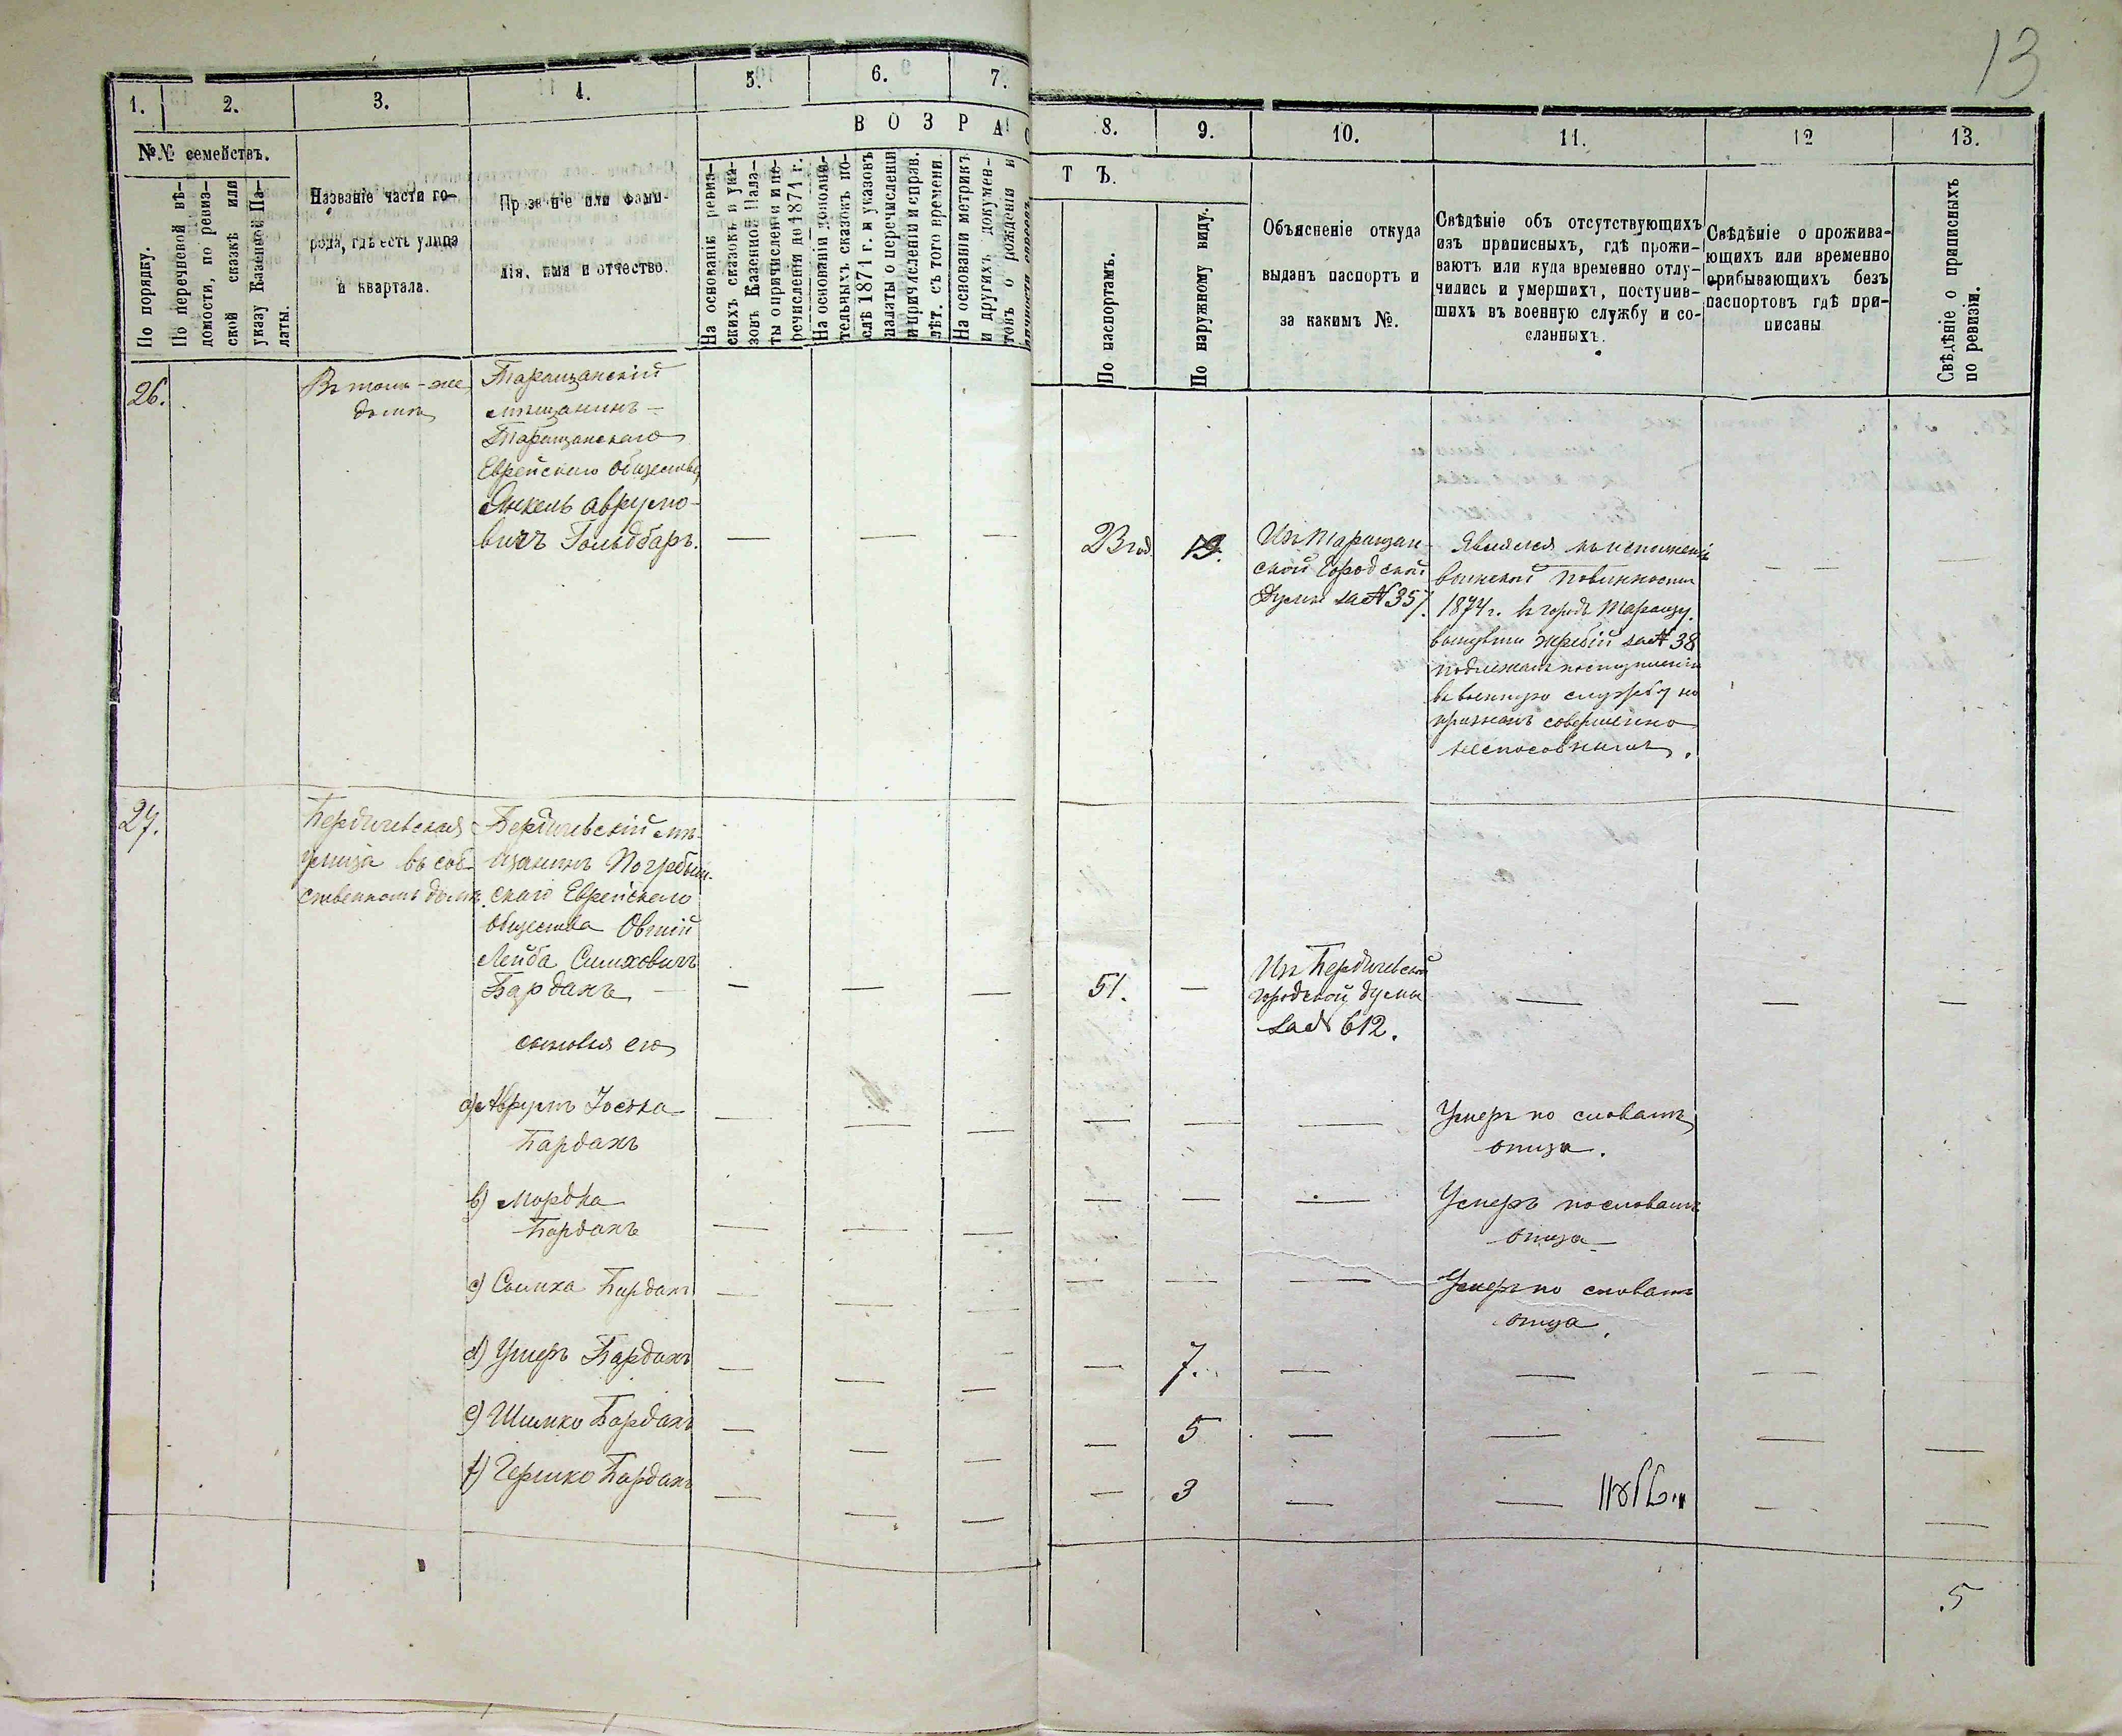 13
1.
2.
3.
4.
5.
6.
7.
8.
9.
10.
11.
12
13.
№№ семействъ.
ВОЗРАС
ТЪ.
По порядку.
По перечневой вѣ-
домости, по ревиз-
ской сказкѣ или
указу Казенной Па-
латы.
Названіе части го-
рода, гдѣ есть улица
и квартала.
Прозваніе или фами-
лія, имя и отчество.
На основаніи ревиз-
скихъ сказокъ и ука-
зовъ Казенной Пала-
ты о причисленіи и пе-
речисленіи до 1871 г.
На основаніи дополни-
тельныхъ сказокъ по-
слѣ 1871 г. и указовъ
палаты о перечисленіи
и причисленіи и справ.
лѣт. съ того времени.
На основаніи метрикъ
и другихъ докумен-
товъ о рожденіи и
По паспортамъ.
По наружному виду.
Объясненіе откуда
выданъ паспортъ и
за какимъ №.
Свѣдѣніе объ отсутствующихъ
изъ приписныхъ, гдѣ прожи-
ваютъ или куда временно отлу-
чились и умершихъ, поступив-
шихъ въ военную службу и со-
сланныхъ.
Свѣдѣніе о прожива-
ющихъ или временно
прибывающихъ безъ
паспортовъ гдѣ при-
писаны
Свѣдѣніе о приписныхъ
по ревизіи.
26.
Въ томъ-же
домѣ
Таращанскій
мѣщанинъ —
Таращанскаго
Еврейскаго Общества
Янкель Аврумо-
вичъ Гольдбаръ.
— — —
23 год
19.
Изъ Таращан-
ской Городской
Думы за № 357.
Явился къ исполненію
воинской повинности
1874 г. въ городъ Таращу.
вынувши жребій за № 38
подлежалъ поступленію
въ военную службу но
признанъ совершенно
неспособнымъ.
— —
27.
Бердичевская
улица въ соб-
ственномъ домѣ.
Бердичевскій мѣ-
щанинъ Погребыщ-
скаго Еврейскаго
Общества Овшій
Лейба Симховичъ
Барданъ —
— — —
51.
—
Изъ Бердичевской
городской думы
за № 612.
— — —
сыновья его
a) Аврумъ Іоська
Барданъ
— — — — — —
Умеръ по словамъ
отца.
b) Мордка
Барданъ
— — — — — —
Умеръ по словамъ
отца
c) Симха Барданъ
— — — — — —
Умеръ по словамъ
отца
d) Умеръ Барданъ
— — — —
7.
— — —
e) Шимко Барданъ
— — — —
5
— — — —
f) Гершко Барданъ
— — — —
3
— — — —
5